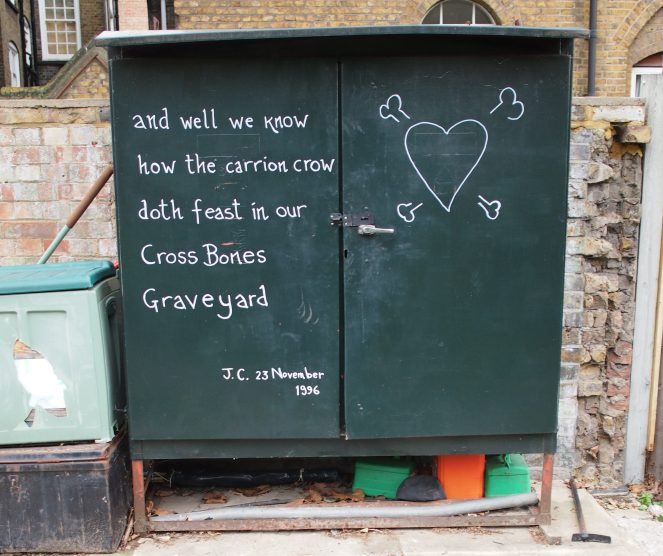 and well we know
how the carrion crow
doth feast in our
Cross Bones
Graveyard
J.C. 23 November
1996